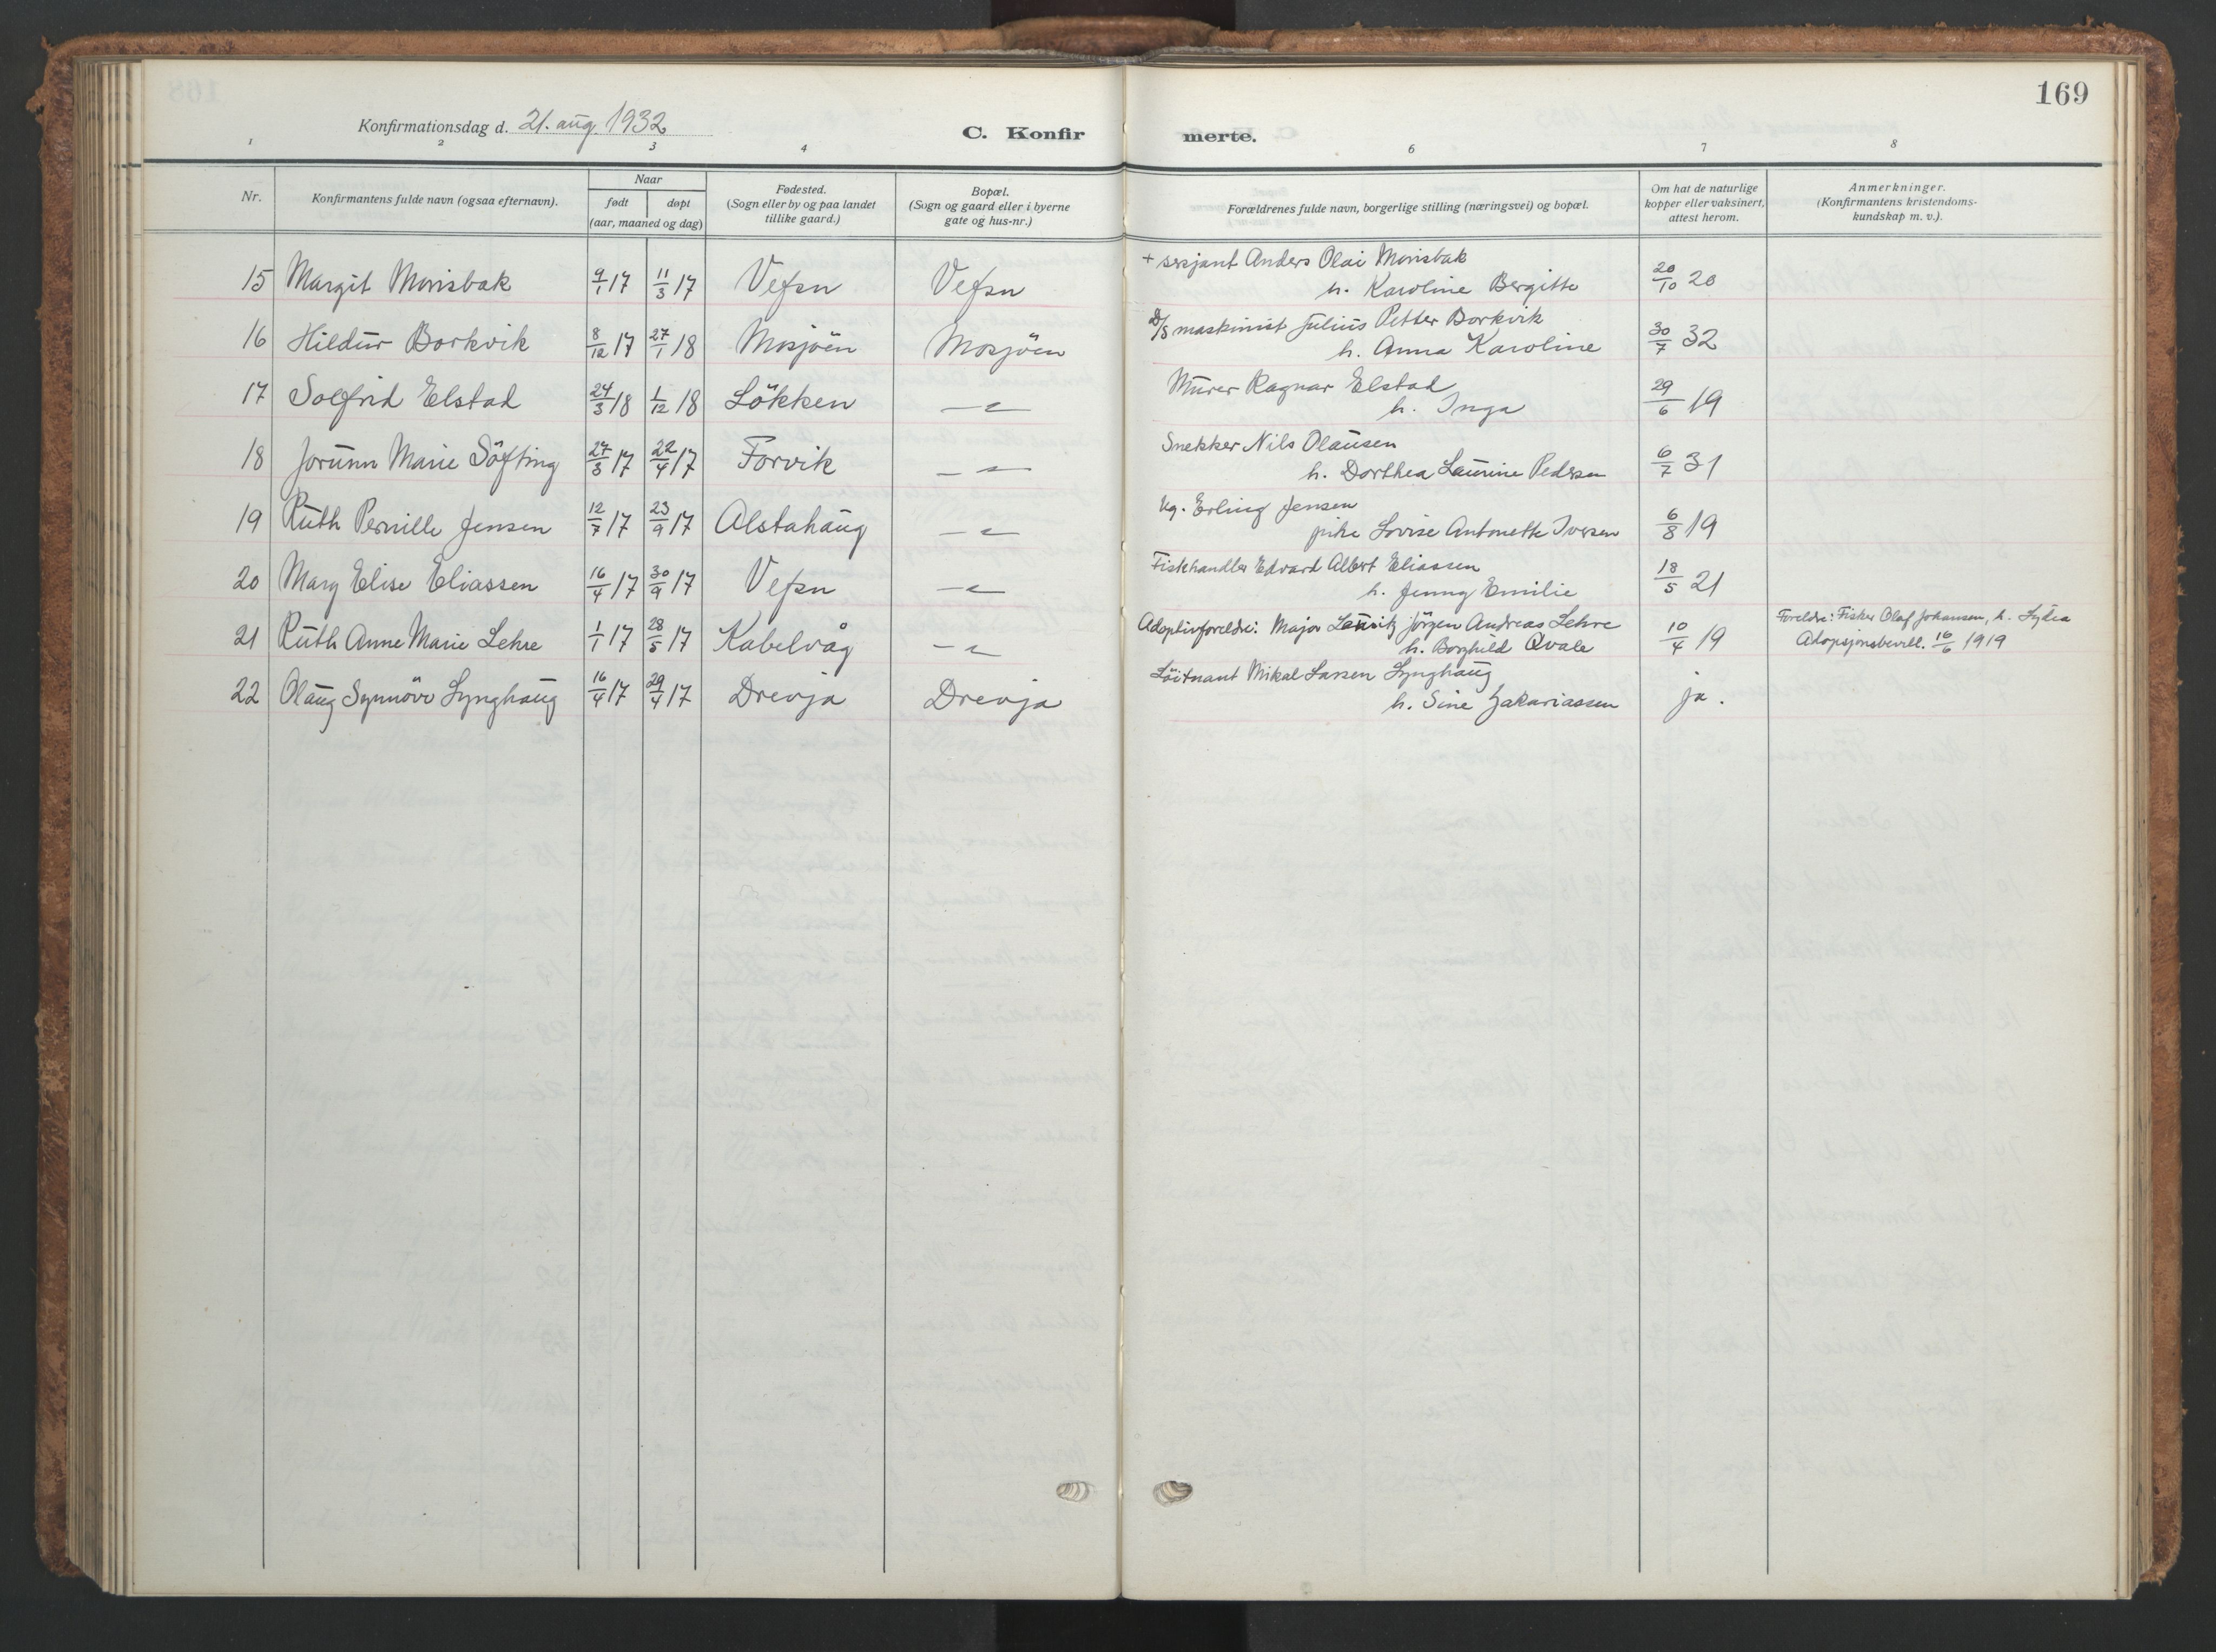 169
Konfirmationsdag d. 21. aug. 1932
C. Konfirmerte.
1 2 3 4 6 7 8
Nr. | Konfirmantens fulde navn (ogsaa efternavn). | Naar født døpt (aar, maaned og dag) | Fødested. (Sogn eller by og paa landet tillike gaard.) | Bopæl. (Sogn og gaard eller i byerne gate og hus-nr.) | Forældrenes fulde navn, borgerlige stilling (næringsvei) og bopæl. | Om hat de naturlige kopper eller vaksinert, attest herom. | Anmerkninger. (Konfirmantens kristendoms-kundskap m. v.).
15 Margit Monsbak 9/1 17 11/3 17 Vefsn Vefsn + sersjant Anders Olai Monsbak
h. Karoline Bergitte 20/10 20
16 Hildur Borkvik 8/12 17 27/1 18 Mosjöen Mosjöen D/S maskinist Julius Petter Borkvik
h. Anna Karoline 30/7 32
17 Solfrid Elstad 24/3 18 1/12 18 Lökken — " — Murer Ragnar Elstad
h. Inga 29/6 19
18 Jorunn Marie Söfting 27/3 17 22/4 17 Forvik — " — Snekker Nils Olausen
h. Dorthea Laurine Pedersen 6/7 31
19 Ruth Pernille Jensen 12/7 17 23/9 17 Alstahaug — " — Ug. Erling Jensen
pike Lovise Antonette Iversen 6/8 19
20 Mary Elise Eliassen 16/4 17 30/9 17 Vefsn — " — Fiskehandler Edvard Albert Eliassen
h. Jenny Emilie 18/5 21
21 Ruth Anne Marie Lehre 1/1 17 28/5 17 Kabelvåg — " — Adoptivforeldre: Major Lauritz Jörgen Andreas Lehre
h. Borghild Qvale 10/4 19 Foreldre: Fisker Olaf Johansen, h. Lydia
Adopsjonsbevill. 16/6 1919
22 Olaug Synnöve Lynghaug 16/4 17 29/4 17 Drevja Drevja Löitnant Mikal Larsen Lynghaug
h. Sine Zakariassen ja.